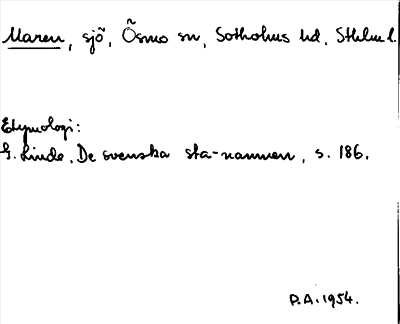 Maren, sjö, Ösmo sn, Sotholms hd, Sthlm l.
Etymologi:
G. Linde, De svenska sta-namnen, s. 186.
P.A. 1954.